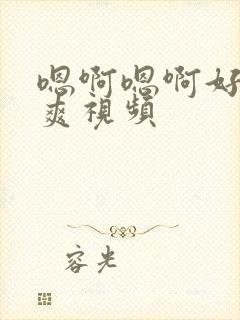 嗯啊嗯啊好
爽視頻
容光